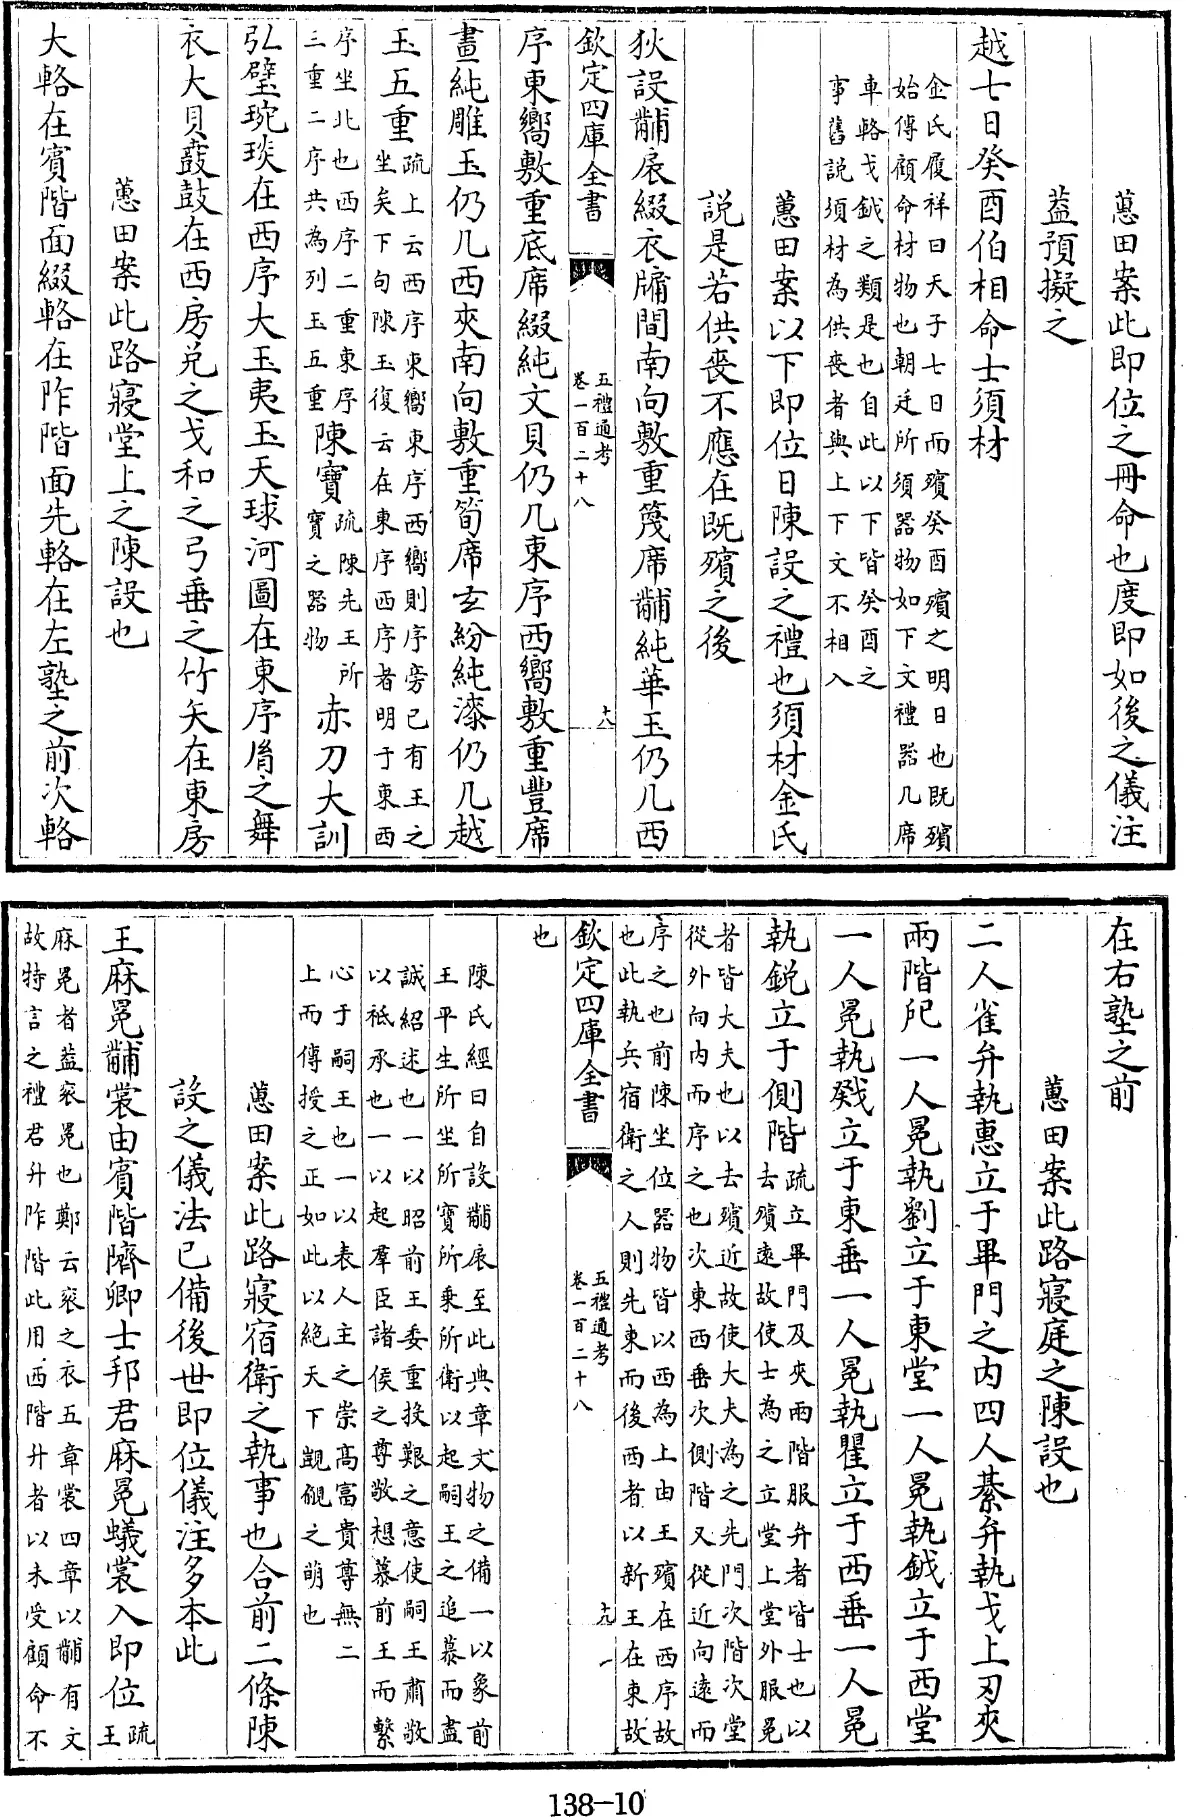 蕙田案此即位之冊命也度即如後之儀注
蓋預擬之
越七日癸酉伯相命士須材
金氏履祥曰天子七日而殯癸酉殯之明日也既殯
始傳顧命材物也朝廷所須器物如下文禮器几席
車輅戈鉞之類是也自此以下皆癸酉之
事舊說須材為供喪者與上下文不相入
蕙田案以下即位日陳設之禮也須材金氏
說是若供喪不應在既殯之後
狄設黼扆綴衣牖間南向敷重篾席黼純華玉仍几西
欽定四庫全書
五禮通考
卷一百二十八
十八
序東嚮敷重底席綴純文貝仍几東序西嚮敷重豐席
畫純雕玉仍几西夾南向敷重筍席玄紛純漆仍几越
玉五重疏上云西序東嚮東序西嚮則序旁已有王之
坐矣下句陳玉復云在東序西序者明于東西
序坐北也西序二重東序
三重二序共為列玉五重陳寶疏陳先王所
寶之器物赤刀大訓
弘璧琬琰在西序大玉夷玉天球河圖在東序胤之舞
衣大貝鼖鼓在西房兌之戈和之弓垂之竹矢在東房
蕙田案此路寢堂上之陳設也
大輅在賓階面綴輅在阼階面先輅在左塾之前次輅
在右塾之前
蕙田案此路寢庭之陳設也
二人雀弁執惠立于畢門之内四人綦弁執戈上刃夾
兩階戺一人冕執劉立于東堂一人冕執鉞立于西堂
一人冕執戣立于東垂一人冕執瞿立于西垂一人冕
執銳立于側階疏立畢門及夾兩階服弁者皆士也以
去殯遠故使士為之立堂上堂外服冕
者皆大夫也以去殯近故使大夫為之先門次階次堂
從外向内而序之也次東西垂次側階又從近向遠而
序之也前陳坐位器物皆以西為上由王殯在西序故
也此執兵宿衛之人則先東而後西者以新王在東故
欽定四庫全書
五禮通考
卷一百二十八
十九
也
陳氏經曰自設黼扆至此典章文物之備一以象前
王平生所坐所寶所乗所衛以起嗣王之追慕而盡
誠紹述也一以昭前王委重投艱之意使嗣王肅敬
以祗承也一以起羣臣諸侯之尊敬想慕前王而繫
心于嗣王也一以表人主之崇高富貴尊無二
上而傳授之正如此以絕天下覬覦之萌也
蕙田案此路寢宿衛之執事也合前二條陳
設之儀法已備後世即位儀注多本此
王麻冕黼裳由賓階隮卿士邦君麻冕蟻裳入即位疏
王
麻冕者蓋衮冕也鄭云衮之衣五章裳四章以黼有文
故特言之禮君升阼階此用西階升者以未受顧命不
138-10